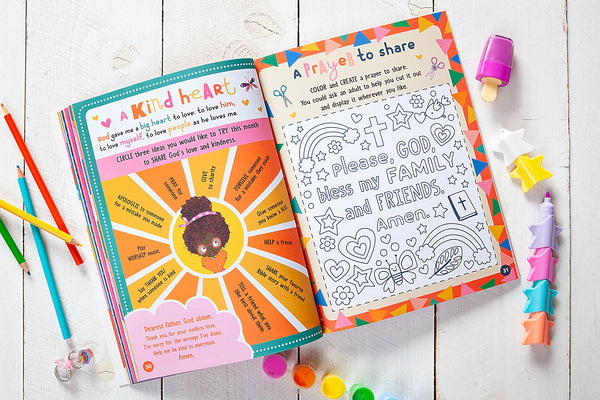 A KIND HEART
God gave me a big heart to love: to love him,
to love myself, to love people as he loves me.
CIRCLE three ideas you would like to TRY this month
to SHARE God's love and kindness.
APOLOGISE to someone
for a mistake you made
PRAY for
someone
GIVE
to charity
FORGIVE someone
for a mistake they made
Give someone
you know a
HELP a friend
SHARE your favorite
Bible story with a friend
TELL a friend what you
like best about them
Say THANK YOU
when someone is kind
Play
WORSHIP music
Dearest Father, God above,
Thank you for your endless love.
I'm sorry for the wrongs I've done.
Help me be kind to everyone.
Amen.
30
A PRAYER to share
COLOR and CREATE a prayer to share.
You could ask an adult to help you cut it out
and display it wherever you like.
Please, GOD,
bless my FAMILY
and FRIENDS.
Amen.
31